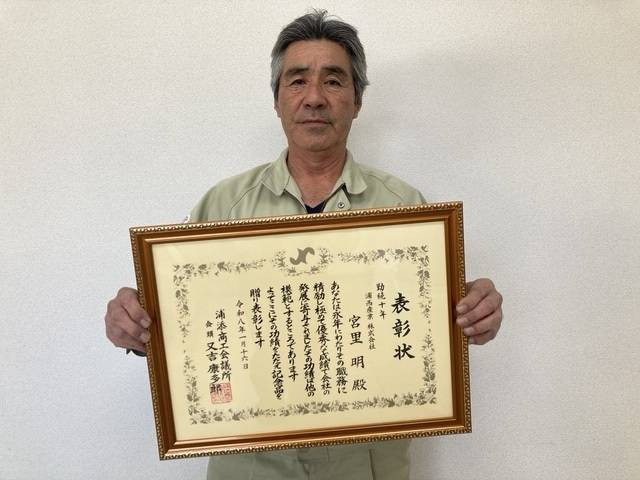 表彰状
勤続十年
浦西産業 株式会社
宮里 明 殿
あなたは永年にわたりその職務に
精励し極めて優秀な成績で会社の
発展に寄与されましたその功績は他の
模範とするところであります
よってここにその功績をたたえ記念品を
贈り表彰します
令和八年一月十六日
浦添商工会議所
会頭 又吉康多郎